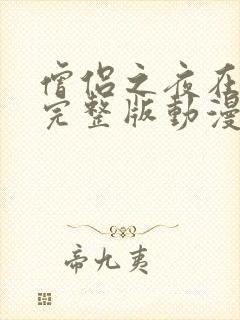 僧侣之夜在
完整版動漫
帝九夷